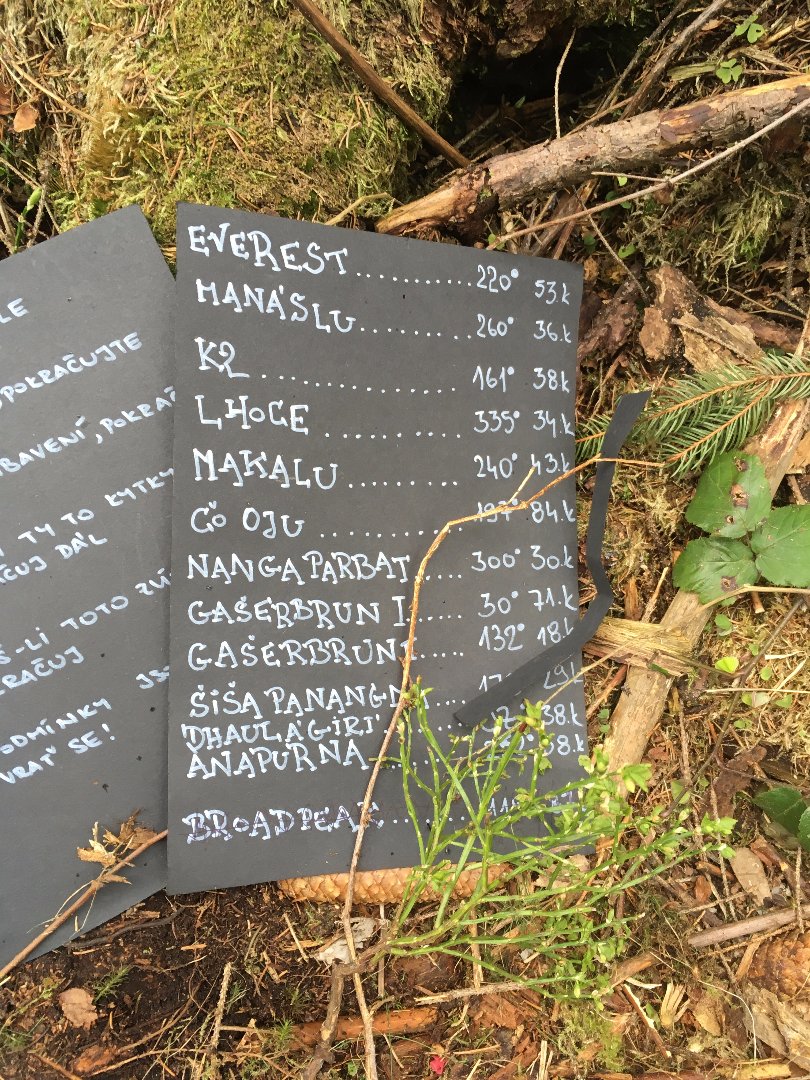 LE
POKRAČUJTE
BAVENÍ, POKRAČ
TY TO KYTKY
ČUJ DÁL
Š-LI TOTO ZÚ
RAČUJ
ODMÍNKY JS
VRAŤ SE!
EVEREST............220° 53.k
MANÁSLU.......... 260° 36.k
K2 ................ 161° 38k
LHOCE ........... 335° 34.k
MAKALU ......... 240° 43.k
ČO OJU ............ 197° 84.k
NANGA PARBAT..... 300° 30.k
GAŠERBRUN I..... 30° 71.k
GAŠERBRUN .... 132° 18.k
ŠIŠAPANANGMA....
DHAULAGIRI 38.k
ANAPURNA 38.k
BROADPEAK.......